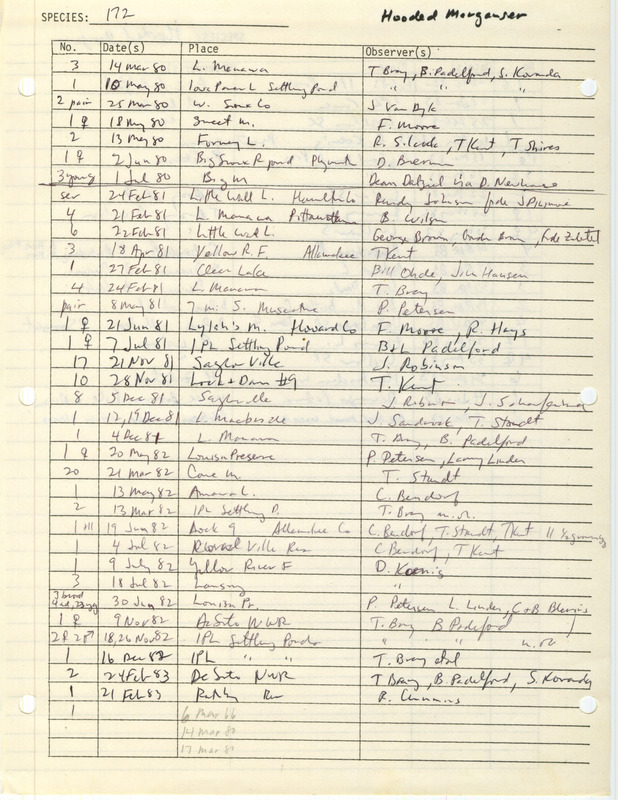 SPECIES: 172 Hooded Merganser
No. Date(s) Place Observer(s)
3 14 Mar 80 L. Manawa T Bray, B. Padelford, S. Kovanda
1 10 May 80 Iowa Power L Settling Pond " " "
2 pair 25 Mar 80 W. Sioux Co J Van Dyk
1 ♀ 18 May 80 Sweet M. F. Moore
2 13 May 80 Forney L. R. Silcock, T Kent, T Shires
1 ♀ 2 Jun 80 Big Sioux R pond Plymouth D. Bierman
3 young 1 Jul 80 Big M Dean Dalziel via D. Newhouse
sev 24 Feb 81 Little Wall L. Hamilton Co Randy Johnson fide J
4 21 Feb 81 L Manawa Pottawattamie B. Wilson
6 22 Feb 81 Little Wall L. George Brown,
3 18 Apr 81 Yellow R. F. Allamakee T Kent
1 27 Feb 81 Clear Lake Bill Ohde, Jim Hansen
4 24 Feb 81 L. Manawa T. Bray
pair 8 May 81 7 mi S. Muscatine P. Petersen
1 ♀ 21 Jun 81 Lylah's M. Howard Co F. Moore, R. Hays
1 ♀ 7 Jul 81 IPL Settling Pond B+L Padelford
17 21 Nov 81 Saylorville J. Robinson
10 28 Nov 81 Lock + Dam #9 T. Kent
8 5 Dec 81 Saylorville J Robinson, J. Schaufenbuel
1 12, 19 Dec 81 L. Macbride J. Sandrock, T. Staudt
1 4 Dec 81 L. Manawa T. Bray, B. Padelford
1 ♀ 20 May 82 Louisa Preserve P. Petersen, Larry Linder
20 21 Mar 82 Cone M. T. Staudt
1 13 May 82 Amana L. C. Bendorf
2 13 Mar 82 IPL Settling P. T. Bray m.ob.
19 Jun 82 Dock 9 Allamakee Co C. Bendorf, T. Staudt, T Kent
1 4 Jul 82 Ville Res C Bendorf, T Kent
1 9 July 82 Yellow River F D. Koenig
3 18 Jul 82 Lansing "
3 brood 30 Jun 82 Louisa Pr. P. Petersen L. Linder, C+B Blevins
1 ♀ 9 Nov 82 DeSoto NWR T. Bray B Padelford
2♀ 2♂ 18, 26 Nov 82 IPL Settling Ponds " " m.ob
1 16 Dec 82 IPL " " T. Bray et al
2 24 Feb 83 DeSoto NWR T Bray, B Padelford, S. Kovanda
1 21 Feb 83 Rathbun Res R. Cummins
1 6 Mar 66
14 Mar 80
17 Mar 80